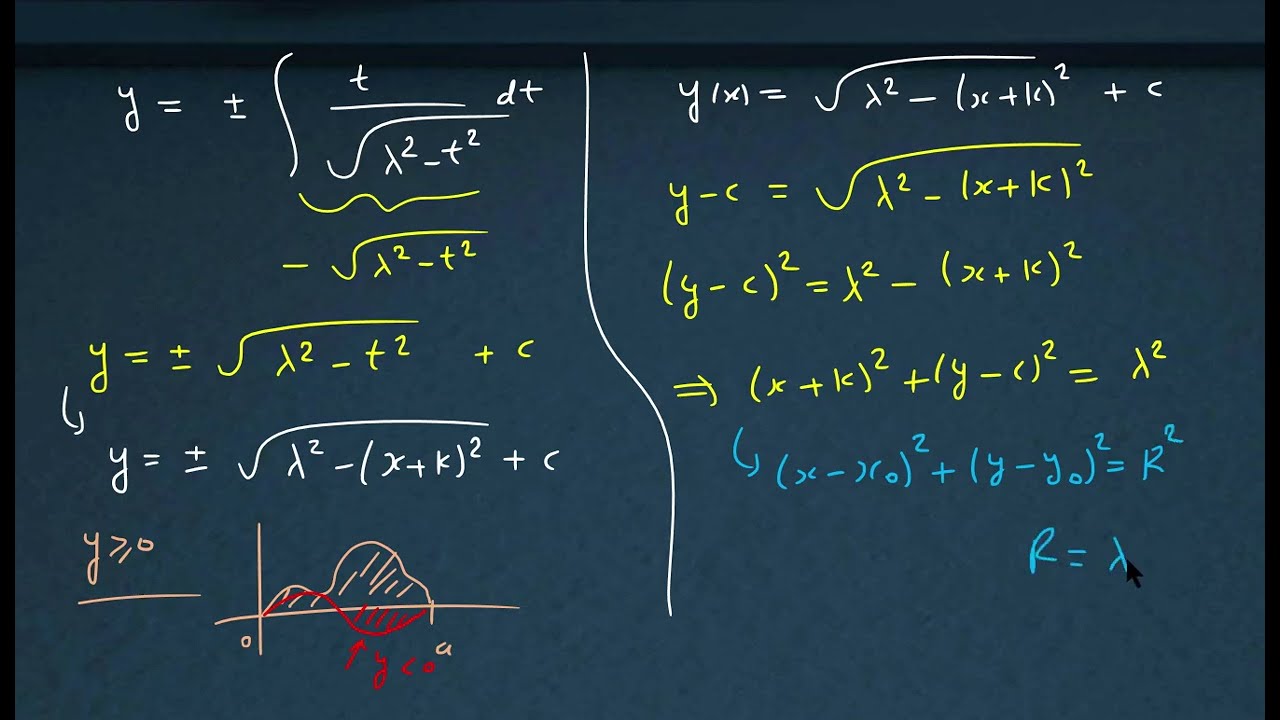 y = ± ∫ t / √(λ² - t²) dt
- √(λ² - t²)
y = ± √(λ² - t²) + c
y = ± √(λ² - (x+k)²) + c
y ⩾ 0
0
a
y < 0
y(x) = √(λ² - (x+k)²) + c
y - c = √(λ² - (x+k)²)
(y - c)² = λ² - (x+k)²
⇒ (x+k)² + (y-c)² = λ²
(x - x₀)² + (y - y₀)² = R²
R = λ